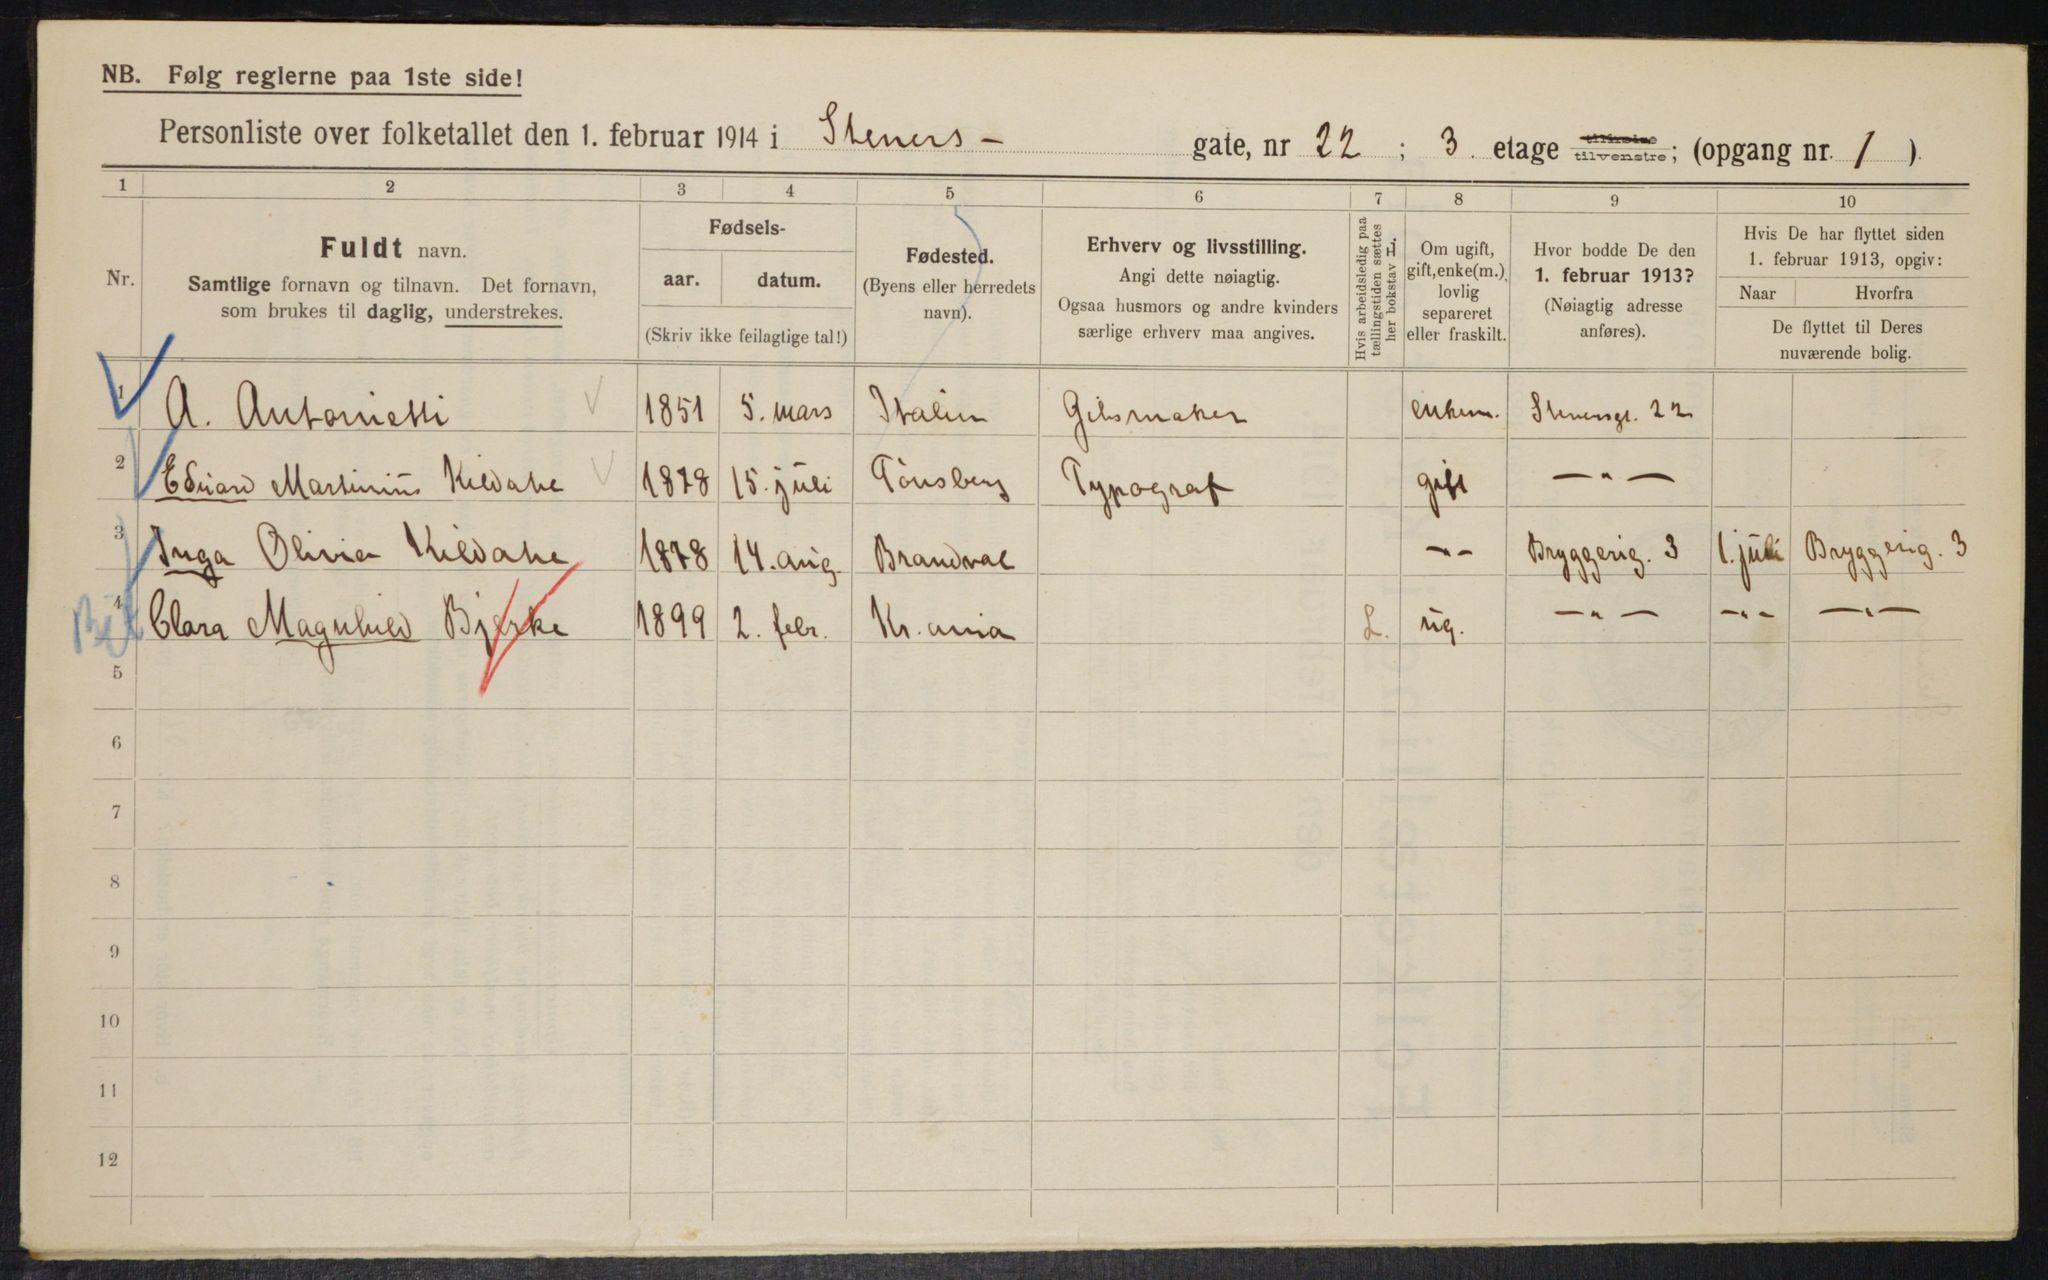 NB. Følg reglerne paa 1ste side!
Personliste over folketallet den 1. februar 1914 i Steners- gate, nr 22 ; 3 etage tilhøire tilvenstre; (opgang nr. 1 ).
1 2 3 4 5 6 7 8 9 10
Nr.
Fuldt navn.
Samtlige fornavn og tilnavn. Det fornavn,
som brukes til daglig, understrekes.
Fødsels-
aar. datum.
(Skriv ikke feilagtige tal!)
Fødested.
(Byens eller herredets
navn).
Erhverv og livsstilling.
Angi dette nøiagtig.
Ogsaa husmors og andre kvinders
særlige erhverv maa angives.
Hvis arbeidsledig paa
tællingstiden sættes
her bokstav L.
Om ugift,
gift, enke(m.),
lovlig
separeret
eller fraskilt.
Hvor bodde De den
1. februar 1913?
(Nøiagtig adresse
anføres).
Hvis De har flyttet siden
1. februar 1913, opgiv:
Naar Hvorfra
De flyttet til Deres
nuværende bolig.
1 A. Antonietti 1851 5. mars Italien Gibsmaker enkem. Stenersgt. 22
2 Eduard Martinius Kildahe 1878 15. juli Tönsberg Typograf gift —"—
3 Inga Olivia Kildahe 1878 14. aug. Brandval -"- Bryggerig. 3 1. juli Bryggerig. 3
4 Clara Magnhild Bjerke 1899 2. febr. Kr.ania L. ug. —"— -"- —"—
5
6
7
8
9
10
11
12